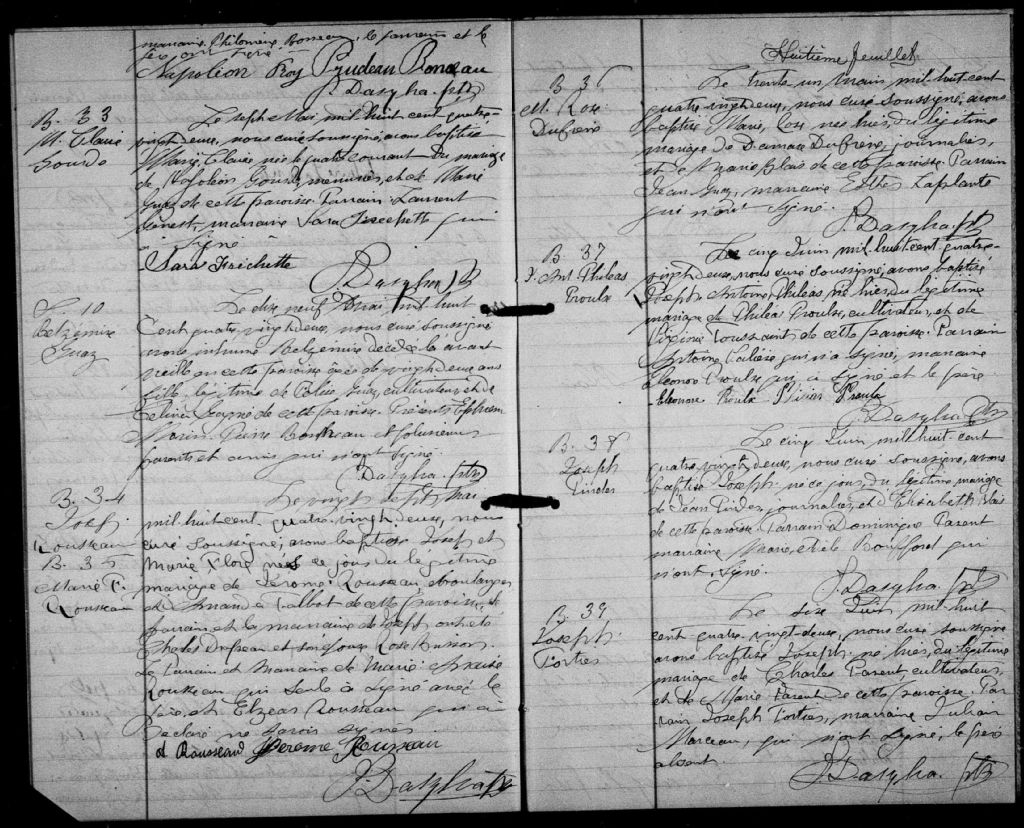 marraine Philomène Bonneau, le parrain et le
père ont signé
Napoléon Roy Prudean Boneau
J. Dasylva. ptr
B. 33
M. Claire
Gourde
Le sept Mai mil huit cent quatre-
vingt deux, nous curé soussigné, avons baptisé
Marie, Claire née le quatre courant du mariage
de Napoléon Gourde, menuisier, et de Marie
Guay de cette paroisse. Parrain Laurent
Genest, marraine Sara Frechette qui
a signé
Sara Frichette
J. Dasylva ptr
S. 10
Belzemire
Guay
Le dix neuf Mai, mil huit
Cent quatre vingt deux, nous curé soussigné
avons inhumé Belzemire décédée l'avant
veille en cette paroisse agée de vingt deux ans
fille légitime de Guay, cultivateur, et de
Celina Gagné de cette paroisse. Présents Ephrem
Morin, Pierre et plusieurs
parents et amis qui n'ont signé
J. Dasylva. ptr
B. 34
Joseph
Rousseau
B. 35
Marie F.
Rousseau
Le vingt sept Mai
mil huit cent quatre vingt deux, nous
curé soussigné, avons baptisé Josef et
Marie Flore nés ce jour du légitime
mariage de Jerome Rousseau, boulanger
et d'Amanda Talbot de cette paroisse, le
parrain et la marraine de Joseph ont été
Charles et son épouse Rose Buisson.
Le Parrain et Marraine de Marie
Rousseau qui seule a signé avec le
père, et Elzear Rousseau qui a
déclaré ne savoir signer
d Rousseau Jerome Rousseau
J. Dasylva ptr
Huitième feuillet
B. 36
M. Rose
Dufresne
Le trente un Mai mil huit cent
quatre vingt deux, nous curé soussigné, avons
baptisé Marie, Rose née hier, du légitime
mariage de Damase Dufresne, journalier,
et de Marie Blais de cette paroisse. Parrain
Jean Guay, marraine Esther Laplante
qui n'ont signé.
J. Dasylva ptr
B. 37
J. Ant Phileas
Proulx
Le cinq Juin mil huit cent quatre-
vingt deux, nous curé soussigné, avons baptisé
Joseph Antoine Phileas, né hier, du légitime
mariage de Phileas Proulx, cultivateur, et de
Toussaint de cette paroisse. Parrain
Antoine qui n'a signé, marraine
Eleonore Proulx qui a signé et le père
Eleonore Proulx Proulx
J. Dasylva. ptr
B. 38
Joseph
Pinder
Le cinq Juin mil huit cent
quatre vingt deux, nous curé soussigné, avons
baptisé Joseph né ce jour, du légitime mariage
de Jean Pinder, journalier, et d'Elisabeth
de cette paroisse. Parrain Dominique Parent
marraine Marie Bouffard qui
n'ont signé.
J. Dasylva. ptr
B. 39
Joseph
Fortier
Le six Juin mil huit
cent quatre vingt deux, nous curé soussigné
avons baptisé Joseph né hier, du légitime
mariage de Charles Parent, cultivateur,
et de Marie Parent de cette paroisse. Par
rain Joseph Fortier, marraine Julian
Marceau, qui n'ont signé, le père
absent.
J. Dasylva. ptr